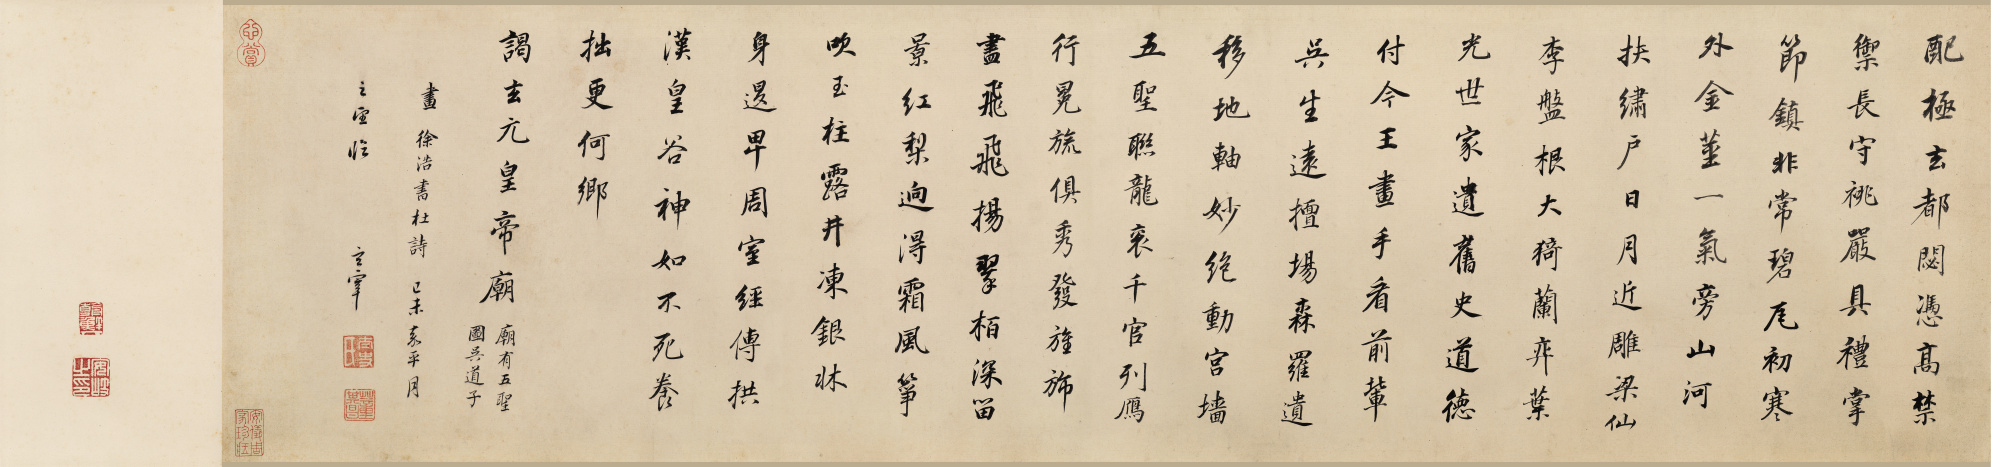 配極玄都閟憑高禁
禦長守祧嚴具禮掌
節鎮非常碧瓦初寒
外金莖一氣旁山河
扶繡戶日月近雕梁仙
李盤根大猗蘭弈葉
光世家遺舊史道德
付今王畫手看前輩
吳生遠擅場森羅遺
移地軸妙絕動宮墻
五聖聯龍袞千官列鴈
行冕旒俱秀發旌旆
盡飛飛揚翠柏深留
景紅梨迥得霜風箏
吹玉柱露井凍銀牀
身退卑周室經傳拱
漢皇谷神如不死養
拙更何鄉
謁玄元皇帝廟
廟有五聖
圖吳道子
畫 徐浩書杜詩 己未嘉平月
玄宰臨 玄宰